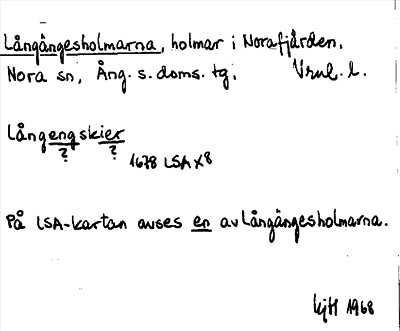 Långängesholmarna, holmar i Norafjärden.
Nora sn, Ång. s. doms. tg. Vnl. l.
Långengskier
? ?
1678 LSA X8
På LSA-kartan avses en av Långängesholmarna.
1968